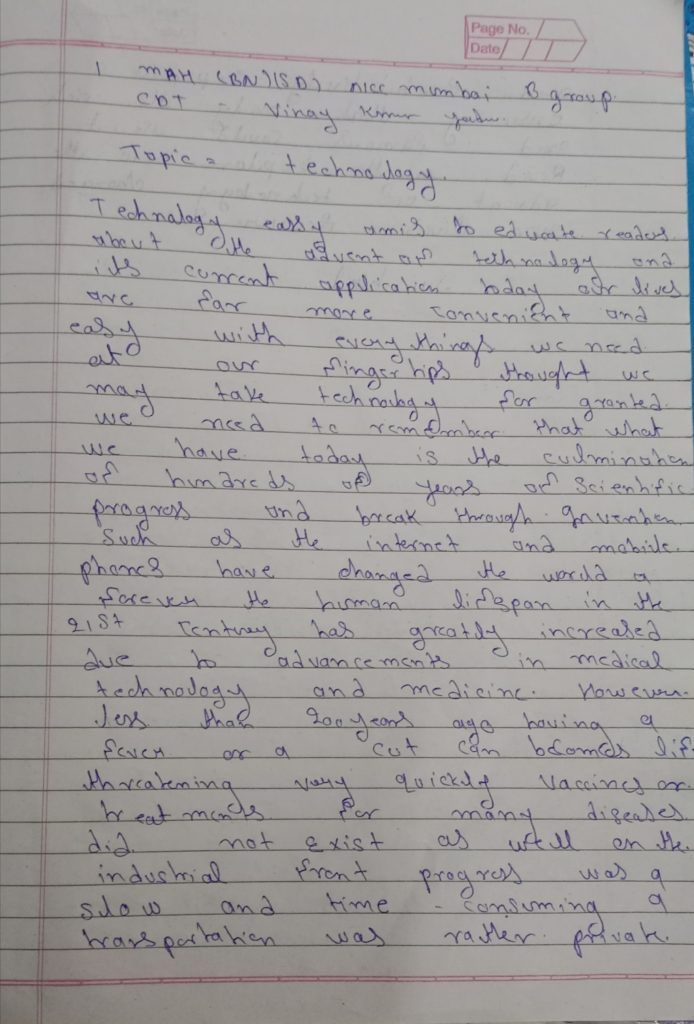 Page No.
Date
1 MAH (BN)(SD) NCC mumbai B group.
CDT - Vinay Kumar
Topic = technology.
Technology easy amis to educate readers
about the advent of technology and
its current application today our lives
are far more convenient and
easy with every things we need
at our fingertips thought we
may take technology for granted.
we need to remember that what
we have today is the culmination
of hundreds of years of Scientific
progress and break through. Invention
Such as the internet and mobile.
phones have changed the world a
forever the human lifespan in the
21st century has greatly increased
due to advancements in medical
technology and medicine. However.
less than 200 years ago having a
fever or a cut can becomes lif-
threatening very quickly vaccines or.
treatments for many diseases
did not exist as well on the.
industrial front progress was a
slow and time - consuming a
transportation was rather private.